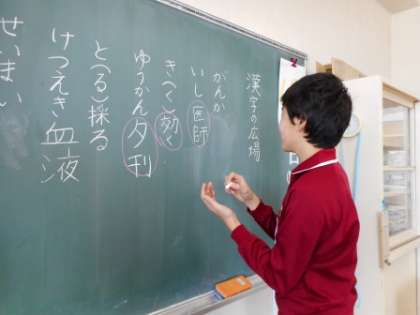 漢字の広場
がんか
いし 医師
き(く) 効く
ゆうかん 夕刊
と(る) 採る
けつえき 血液
せいまい